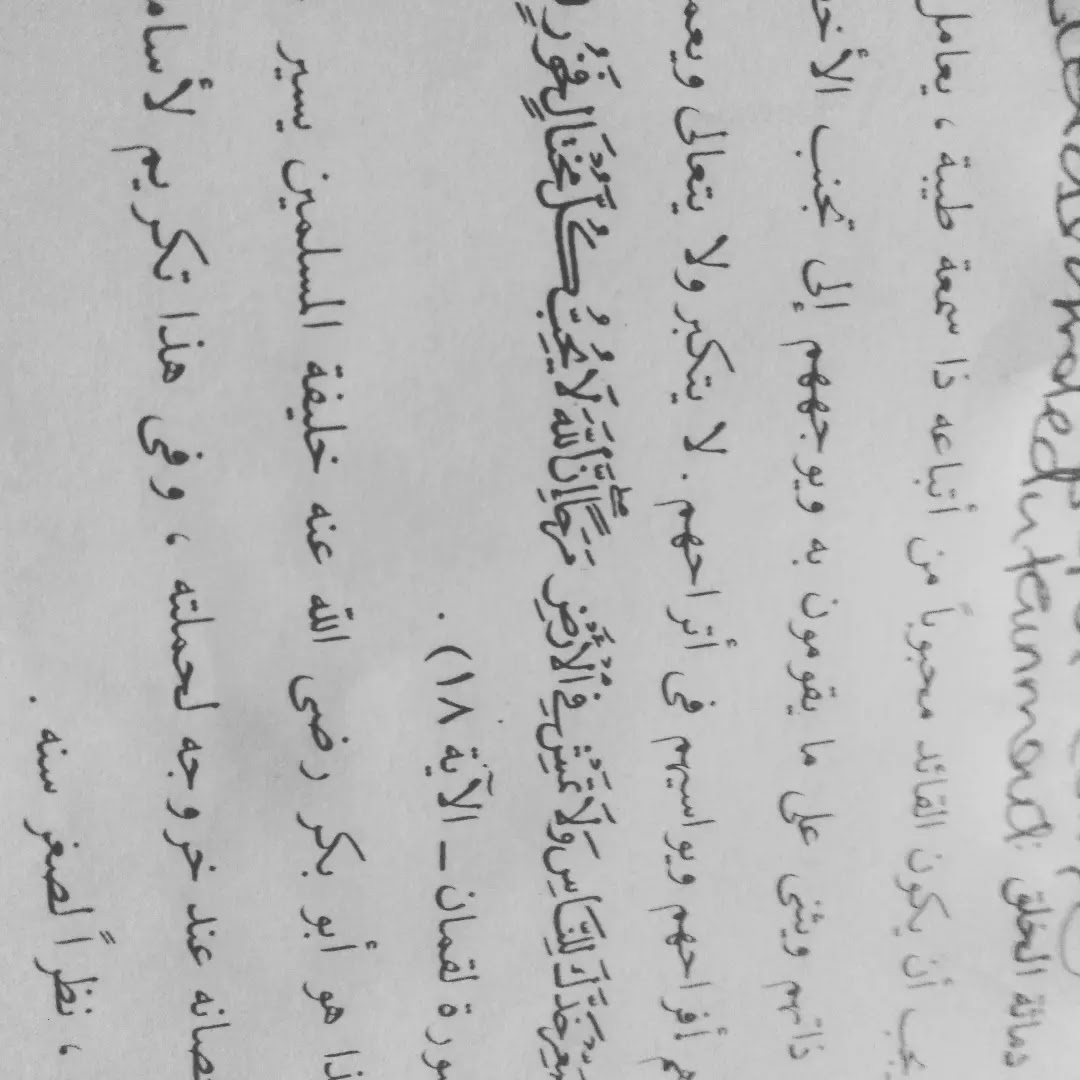 دماثة الخلق :
يجب أن يكون القائد محبوباً من أتباعه ذا سمعة طيبة ، يعامل
ذاتهم ويثنى على ما يقومون به ويوجههم إلى تجنب
أفراحهم ويواسيهم فى أتراحهم . لا يتكبر ولا يتعالى
خَدَّكَ لِلنَّاسِ وَلَا تَمْشِ فِى ٱلْأَرْضِ مَرَحًا ۖ إِنَّ ٱللَّهَ لَا يُحِبُّ كُلَّ مُخْتَالٍ فَخُورٍ
ورة لقمان ـ الآية ١٨) .
ذا هو أبو بكر رضى الله عنه خليفة المسلمين يسير
صانه عند خروجه لحملته ، وفى هذا تكريم لأسام
، نظراً لصغر سنه .